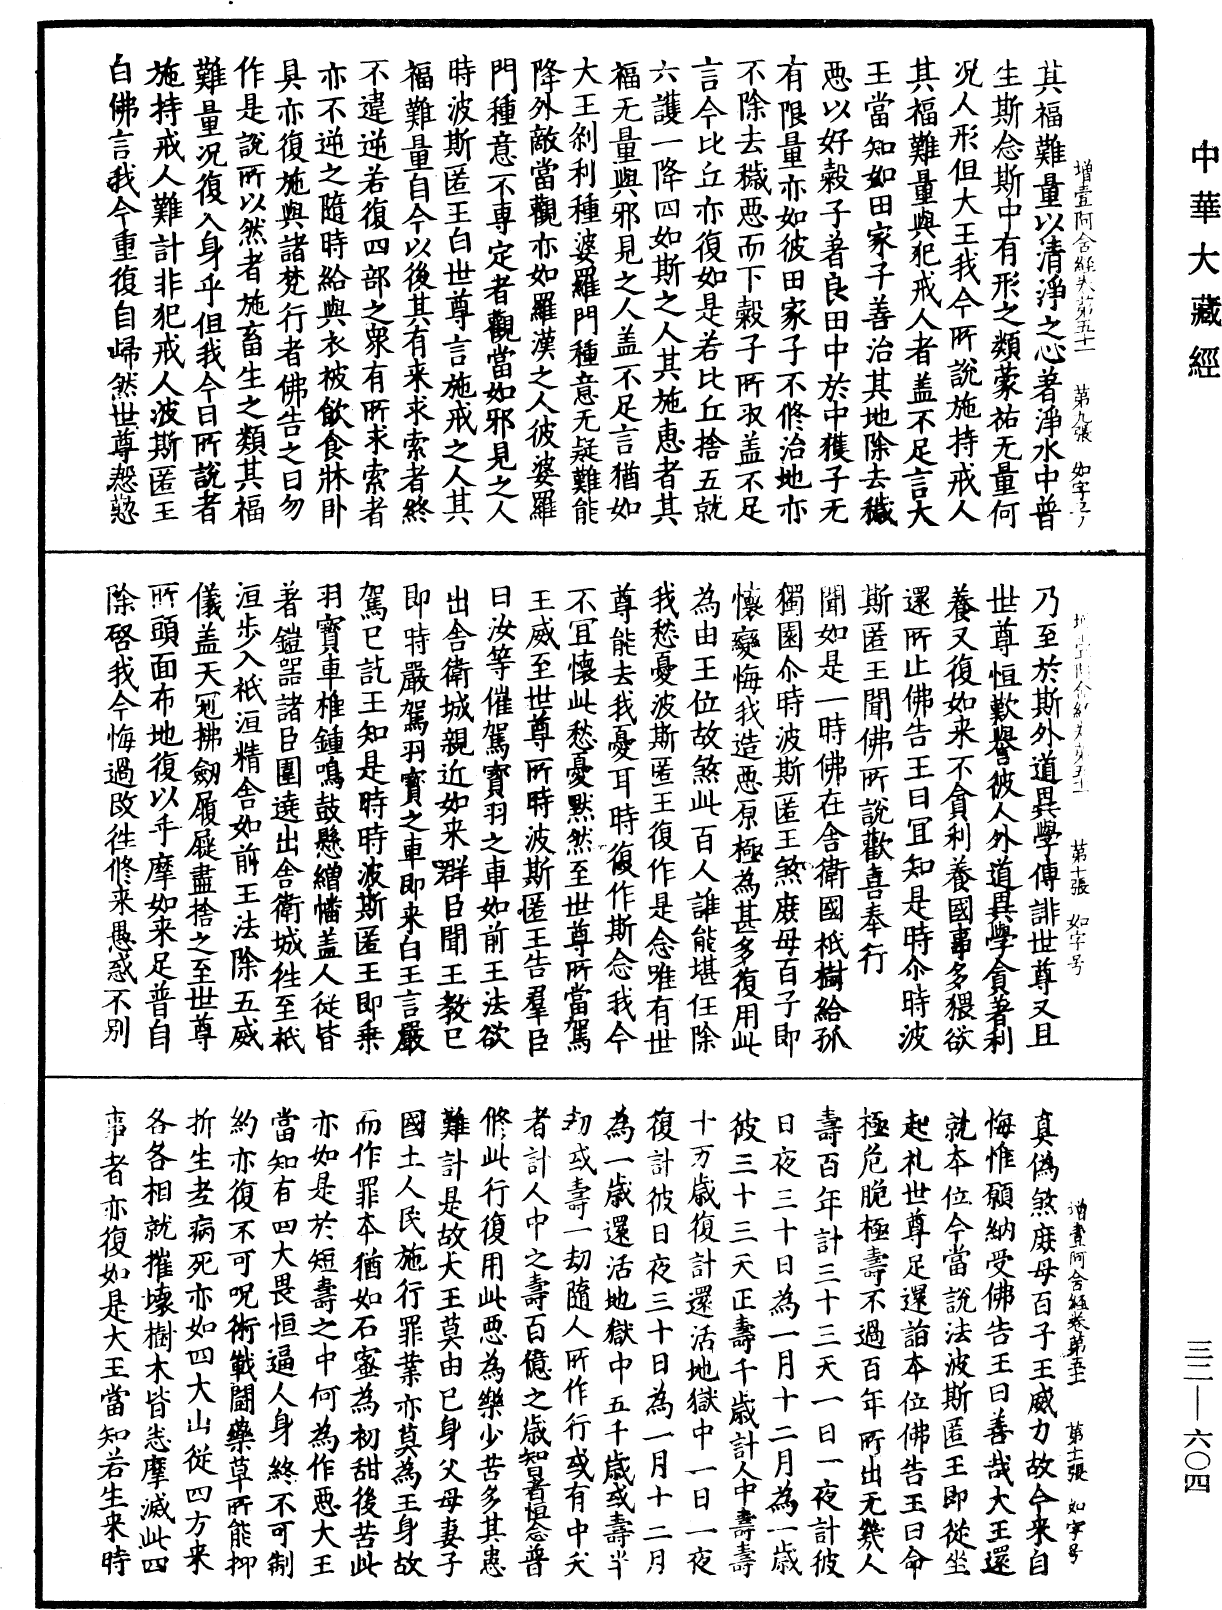 中華大藏經
增壹阿含經卷第五十一 第九張 如字号
其福難量以清淨之心著淨水中普
生斯念斯中有形之類蒙祐无量何
况人形但大王我今所說施持戒人
其福難量與犯戒人者盖不足言大
王當知如田家子善治其地除去穢
惡以好穀子著良田中於中獲子无
有限量亦如彼田家子不修治地亦
不除去穢惡而下穀子所收盖不足
言今比丘亦復如是若比丘捨五就
六護一降四如斯之人其施惠者其
福无量與邪見之人盖不足言猶如
大王剎利種婆羅門種意无疑難能
降外敵當觀亦如羅漢之人彼婆羅
門種意不專定者觀當如邪見之人
時波斯匿王白世尊言施戒之人其
福難量自今以後其有来求索者終
不違逆若復四部之衆有所求索者
亦不逆之隨時給與衣被飲食牀卧
具亦復施與諸梵行者佛告之曰勿
作是說所以然者施畜生之類其福
難量况復入身乎但我今日所說者
施持戒人難計非犯戒人波斯匿王
白佛言我今重復自歸然世尊慇懃
第十張 如字号
乃至於斯外道異學傳誹世尊又且
世尊恒歎譽彼人外道異學貪著利
養又復如来不貪利養國事多猥欲
還所止佛告王曰冝知是時尒時波
斯匿王聞佛所說歡喜奉行
聞如是一時佛在舍衛國祇樹給孤
獨園尒時波斯匿王煞庶母百子即
懷變悔我造惡原極為甚多復用此
為由王位故煞此百人誰能堪任除
我愁憂波斯匿王復作是念唯有世
尊能去我憂耳時復作斯念我今
不冝懷此愁憂默然至世尊所當駕
王威至世尊所時波斯匿王告羣臣
曰汝等催駕寶羽之車如前王法欲
出舍衛城親近如来群臣聞王教已
即時嚴駕羽寶之車即来白王言嚴
駕已訖王知是時時波斯匿王即乗
羽寶車椎鍾鳴鼓懸繒幡盖人從皆
著鎧器諸臣圍遶出舍衛城徃至祇
洹步入祇洹精舍如前王法除五威
儀盖天冠拂劒履屣盡捨之至世尊
所頭面布地復以手摩如来足普自
除啓我今悔過改徃修来愚惑不別
增壹阿含經卷第五十一 第十一張 如字号
真偽煞庶母百子王威力故今来自
悔惟願納受佛告王曰善哉大王還
就本位今當說法波斯匿王即從坐
起礼世尊足還詣本位佛告王曰命
極危脆極壽不過百年所出无幾人
壽百年計三十三天一日一夜計彼
日夜三十日為一月十二月為一歲
彼三十三天正壽千歲計人中壽壽
十万歲復計還活地獄中一日一夜
復計彼日夜三十日為一月十二月
為一歲還活地獄中五千歲或壽半
劫或壽一劫隨人所作行或有中夭
者計人中之壽百億之歲智者恒念普
修此行復用此惡為樂少苦多其患
難計是故大王莫由已身父母妻子
國土人民施行罪業亦莫為王身故
而作罪本猶如石蜜為初甜後苦此
亦如是於短壽之中何為作惡大王
當知有四大畏恒逼人身終不可制
約亦復不可呪術戰鬪藥草所能抑
折生老病死亦如四大山從四方来
各各相就摧壞樹木皆悉摩滅此四
事者亦復如是大王當知若生来時
三二—六〇四